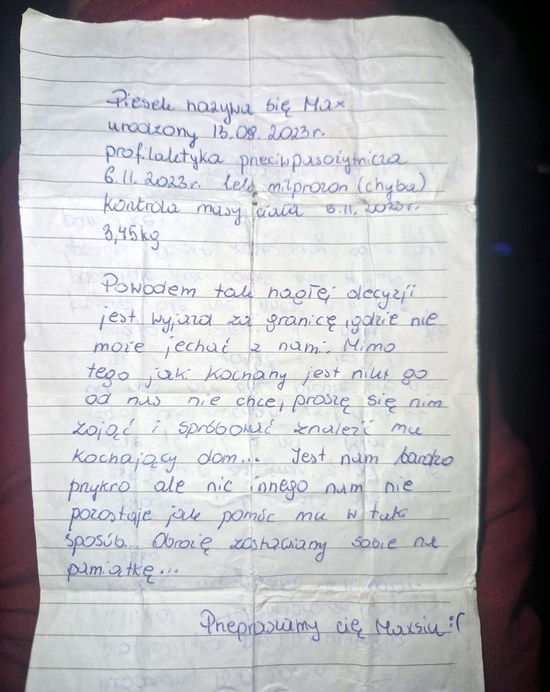 Piesek nazywa się Max
urodzony 13.08.2023r.
profilaktyka przeciwpasożytnicza
6.11.2023r. lek milprozon (chyba)
kontrola masy ciała 6.11.2023r.
3,45kg
Powodem tak nagłej decyzji
jest wyjazd za granicę, gdzie nie
może jechać z nami. Mimo
tego jaki kochany jest nikt go
od nas nie chce, proszę się nim
zająć i spróbować znaleźć mu
kochający dom... Jest nam bardzo
przykro ale nic innego nam nie
pozostaje jak pomóc mu w taki
sposób... Obrożę zostawiamy sobie na
pamiątkę...
Przepraszamy cię Maksiu :(